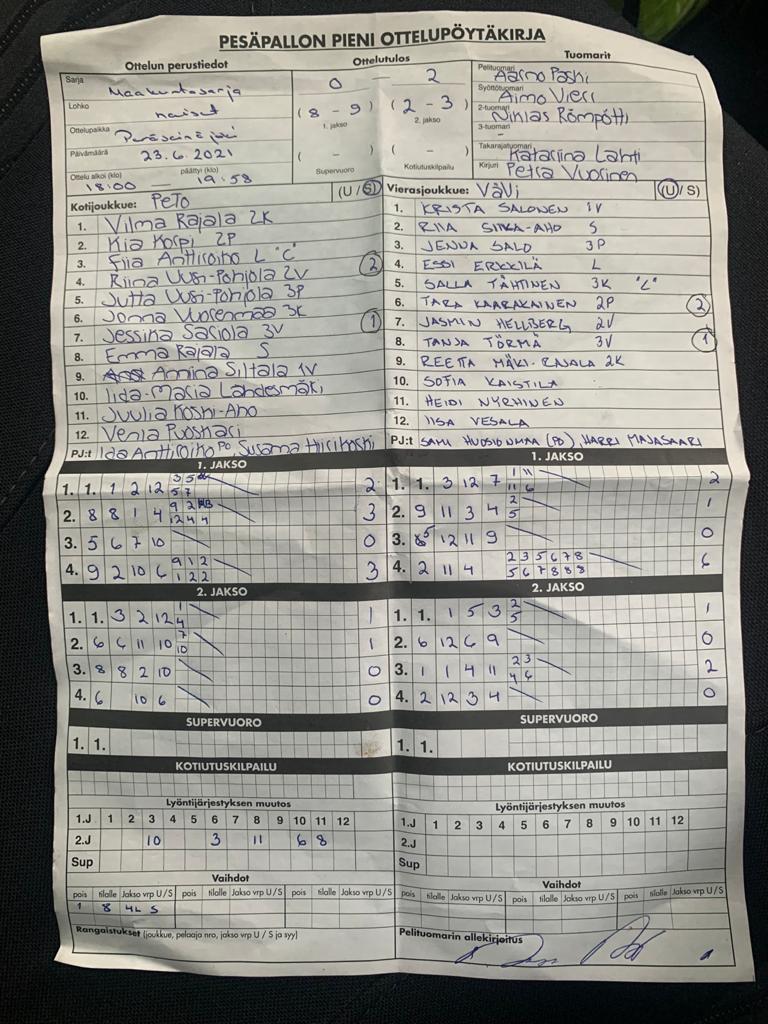 PESÄPALLON PIENI OTTELUPÖYTÄKIRJA
Ottelun perustiedot
Sarja Maakuntasarja
Lohko naiset
Ottelupaikka Peräseinäjoki
Päivämäärä 23.6.2021
Ottelu alkoi (klo) päättyi (klo)
18:00 — 19:58
Ottelutulos
0 — 2
(8 - 9) (2 - 3)
1. jakso 2. jakso
( - ) ( - )
Supervuoro Kotiutuskilpailu
Tuomarit
Pelituomari Aarno Pashi
Syöttötuomari Aimo Vieri
2-tuomari Niklas Römpötti
3-tuomari
Takarajatuomari Katariina Lahti
Kirjuri Petra Vuorinen
Kotijoukkue: PeTo (U/S)
1. Vilma Rajala 2K
2. Kia Korpi 2P
3. Fiia Anttiroiko L "C"
4. Riina Uusi-Pohjola 2V 2
5. Jutta Uusi-Pohjola 3P
6. Jonna Vuorenmaa 3K
7. Jessina Sariola 3V 1
8. Emma Rajala S
9. Annina Siltala 1V
10. Iida-Maria Lähdesmäki
11. Juulia Koski-Aho
12. Venla
PJ:t Ida Anttiroiko PO, Susanna Hirikoski
Vierasjoukkue: VäVi (U/S)
1. KRISTA SALONEN 1V
2. RIIA SIIKA-AHO S
3. JENNA SALO 3P
4. ESSI ERKKILÄ L
5. SALLA TÄHTINEN 3K "C"
6. TARA KAARAKAINEN 2P 2
7. JASMIN HELLBERG 2V
8. TANJA TÖRMÄ 3V 1
9. REETTA MÄKI-RAJALA 2K
10. SOFIA KAISTILA
11. HEIDI NYRHINEN
12. IISA VESALA
PJ:t SAMI (PO), HARRI MAJASAARI
1. JAKSO
1. 1. 1 2 12 3 5 5 7 2
2. 8 8 1 4 9 2 12 4 4 3
3. 5 6 7 10 0
4. 9 2 10 6 9 1 2 1 2 2 3
1. JAKSO
1. 1. 3 12 7 1 11 11 6 2
2. 9 11 3 4 2 5 1
3. 5 12 11 9 0
4. 2 11 4 2 3 5 6 7 8 5 6 7 8 8 8 6
2. JAKSO
1. 1. 3 2 12 1 4 1
2. 6 6 11 10 7 10 1
3. 8 8 2 10 0
4. 6 10 6 0
2. JAKSO
1. 1. 1 5 3 2 5 1
2. 6 12 6 9 0
3. 1 1 4 11 2 3 4 6 2
4. 2 12 3 4 0
SUPERVUORO
1. 1.
SUPERVUORO
1. 1.
KOTIUTUSKILPAILU
KOTIUTUSKILPAILU
Lyöntijärjestyksen muutos
1.J 1 2 3 4 5 6 7 8 9 10 11 12
2.J 10 3 11 6 8
Sup
Lyöntijärjestyksen muutos
1.J 1 2 3 4 5 6 7 8 9 10 11 12
2.J
Sup
Vaihdot
pois tilalle Jakso vrp U/S pois tilalle Jakso vrp U/S pois tilalle Jakso vrp U/S
1 8 4L S
Vaihdot
pois tilalle Jakso vrp U/S pois tilalle Jakso vrp U/S pois tilalle Jakso vrp U/S
Rangaistukset (joukkue, pelaaja nro, jakso vrp U / S ja syy)
Pelituomarin allekirjoitus